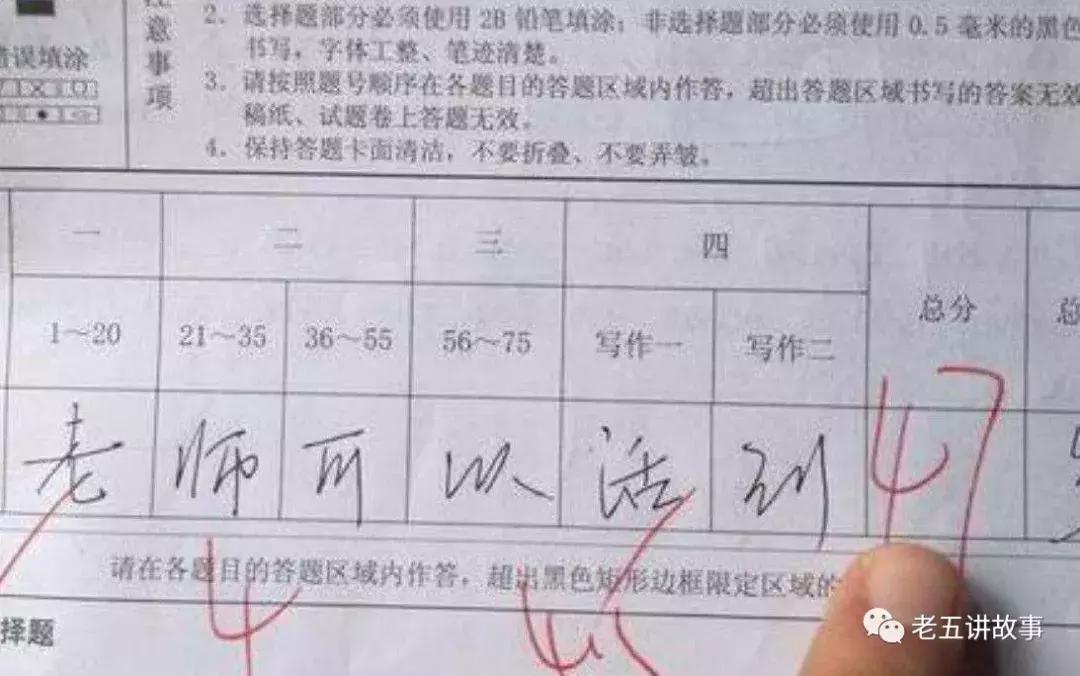 意事项
错误填涂
2. 选择题部分必须使用 2B 铅笔填涂；非选择题部分必须使用 0.5 毫米的黑色
书写，字体工整、笔迹清楚。
3. 请按照题号顺序在各题目的答题区域内作答，超出答题区域书写的答案无效
稿纸、试题卷上答题无效。
4. 保持答题卡面清洁，不要折叠、不要弄皱。
一 二 三 四 总分
1～20 21～35 36～55 56～75 写作一 写作二
老 师 可 以 活 到 47
请在各题目的答题区域内作答，超出黑色矩形边框限定区域的
4
择题
老五讲故事